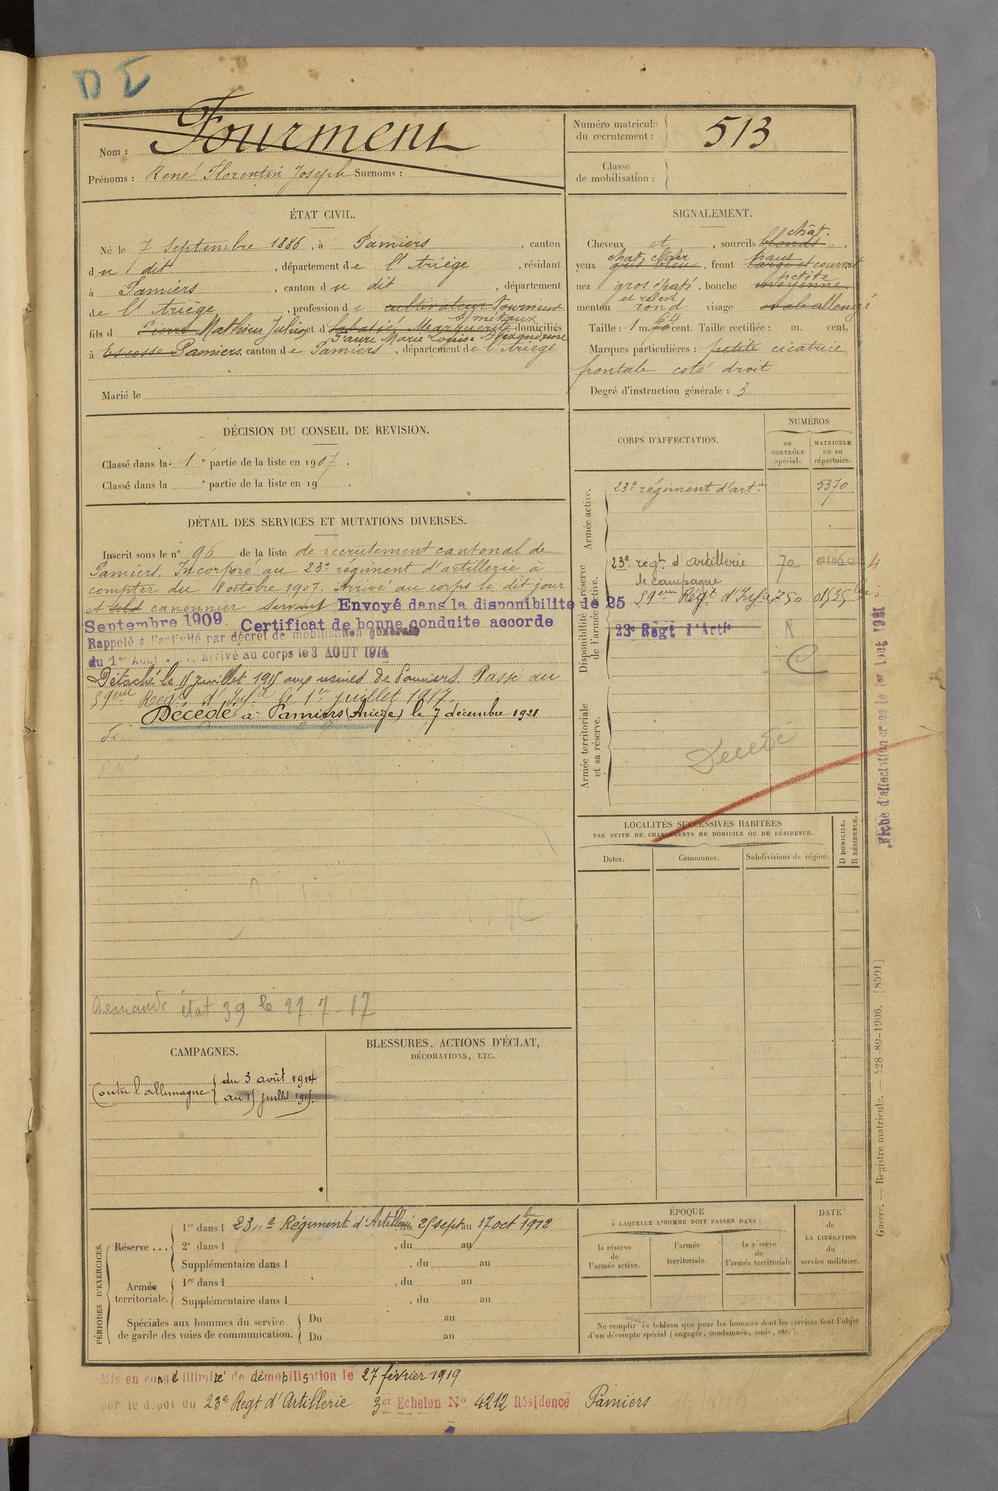 DI
Nom : Fourment
Prénoms : René Florentin Joseph Surnoms :
Numéro matricule du recrutement : 513
Classe de mobilisation :
ÉTAT CIVIL.
Né le 7 Septembre 1886, à Pamiers, canton
du dit, département de l'Ariège, résidant
à Pamiers, canton du dit, département
de l'Ariège, profession de cultivateur Tourneur
s/métaux
fils d Mathieu Julien et d Marguerite domiciliés
Faure Marie Louise Alexandrine
à Escosse Pamiers, canton de Pamiers, département de l'Ariège
Marié le
SIGNALEMENT.
chât.
Cheveux et, sourcils blonds
chat. clair haut
yeux gris bleu, front large et couvert
petite
nez gros épaté, bouche moyenne
et relevé rond
menton, visage oval allongé
Taille : 1 m. cent. Taille rectifiée : m. cent.
Marques particulières : petite cicatrice
frontale coté droit
Degré d'instruction générale : 3
DÉCISION DU CONSEIL DE REVISION.
Classé dans la 1e partie de la liste en 1907.
Classé dans la e partie de la liste en 19 .
DÉTAIL DES SERVICES ET MUTATIONS DIVERSES.
Inscrit sous le n° 96 de la liste de recrutement cantonal de
Pamiers. Incorporé au 23e régiment d'artillerie à
compter du 8 octobre 1907. Arrivé au corps le dit jour
et canonnier servant Envoyé dans la disponibilité le 25
Septembre 1909. Certificat de bonne conduite accordé
Rappelé à l'activité par décret de mobilisation générale
du 1er Août arrivé au corps le 3 AOUT 1914
Détaché le 15 juillet 1915 aux usines de Pamiers. Passé au
59eme Regt d'Infie le 1er juillet 1917
Décédé à Pamiers (Ariège) le 7 décembre 1921
Demande état 39 le 27-7-17
CORPS D'AFFECTATION.
NUMÉROS
au CONTRÔLE spécial.
MATRICULE ou au répertoire.
Armée active.
23e régiment d'artie 5370
Disponibilité et réserve de l'armée active.
23e régt d'artillerie 70
de campagne
59eme Regt d'Infie
23e Regt d'Artie R
C
Armée territoriale et sa réserve.
Décédé
Fiche d'affectation créée le 1er Aout 1921
LOCALITÉS SUCCESSIVES HABITÉES
PAR SUITE DE CHANGEMENTS DE DOMICILE OU DE RÉSIDENCE.
Dates.
Communes.
Subdivisions de région.
D DOMICILE.
R RÉSIDENCE.
CAMPAGNES.
Contre l'allemagne { du 3 août 1914
au 15 juillet 1915.
BLESSURES, ACTIONS D'ÉCLAT,
DÉCORATIONS, ETC.
PÉRIODES D'EXERCICES.
Réserve ... 1re dans l 23e Régiment d'Artillerie 25 sept au 17 octbre 1912
2e dans l , du au
Supplémentaire dans l , du au
Armée territoriale. 1re dans l , du au
Supplémentaire dans l , du au
Spéciales aux hommes du service de garde des voies de communication. Du au
Du au
ÉPOQUE
À LAQUELLE L'HOMME DOIT PASSER DANS :
la réserve de l'armée active.
l'armée territoriale.
la réserve de l'armée territoriale
DATE de LA LIBÉRATION du service militaire.
Ne remplir ce tableau que pour les hommes dont les services font l'objet
d'un décompte spécial (engagés, condamnés, omis, etc.).
Guerre. — Registre matricule. — 428-89-1906. [8591]
Mis en congé illimité de démobilisation le 27 février 1919
par le dépot du 23e Regt d'Artillerie 3er Echelon No 4212 Résidence Pamiers